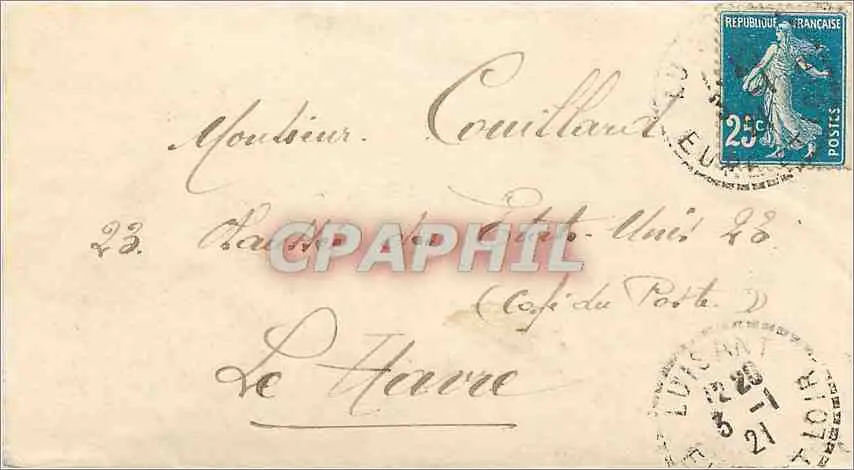 REPUBLIQUE FRANÇAISE
25c
POSTES
LU
EURE
Monsieur. Couillard
23. Chaussée des Etats-Unis 23
(Café du Poste.)
Le Havre
CPAPHIL
LUISANT
12 20
3 -1
21
E T LOIR